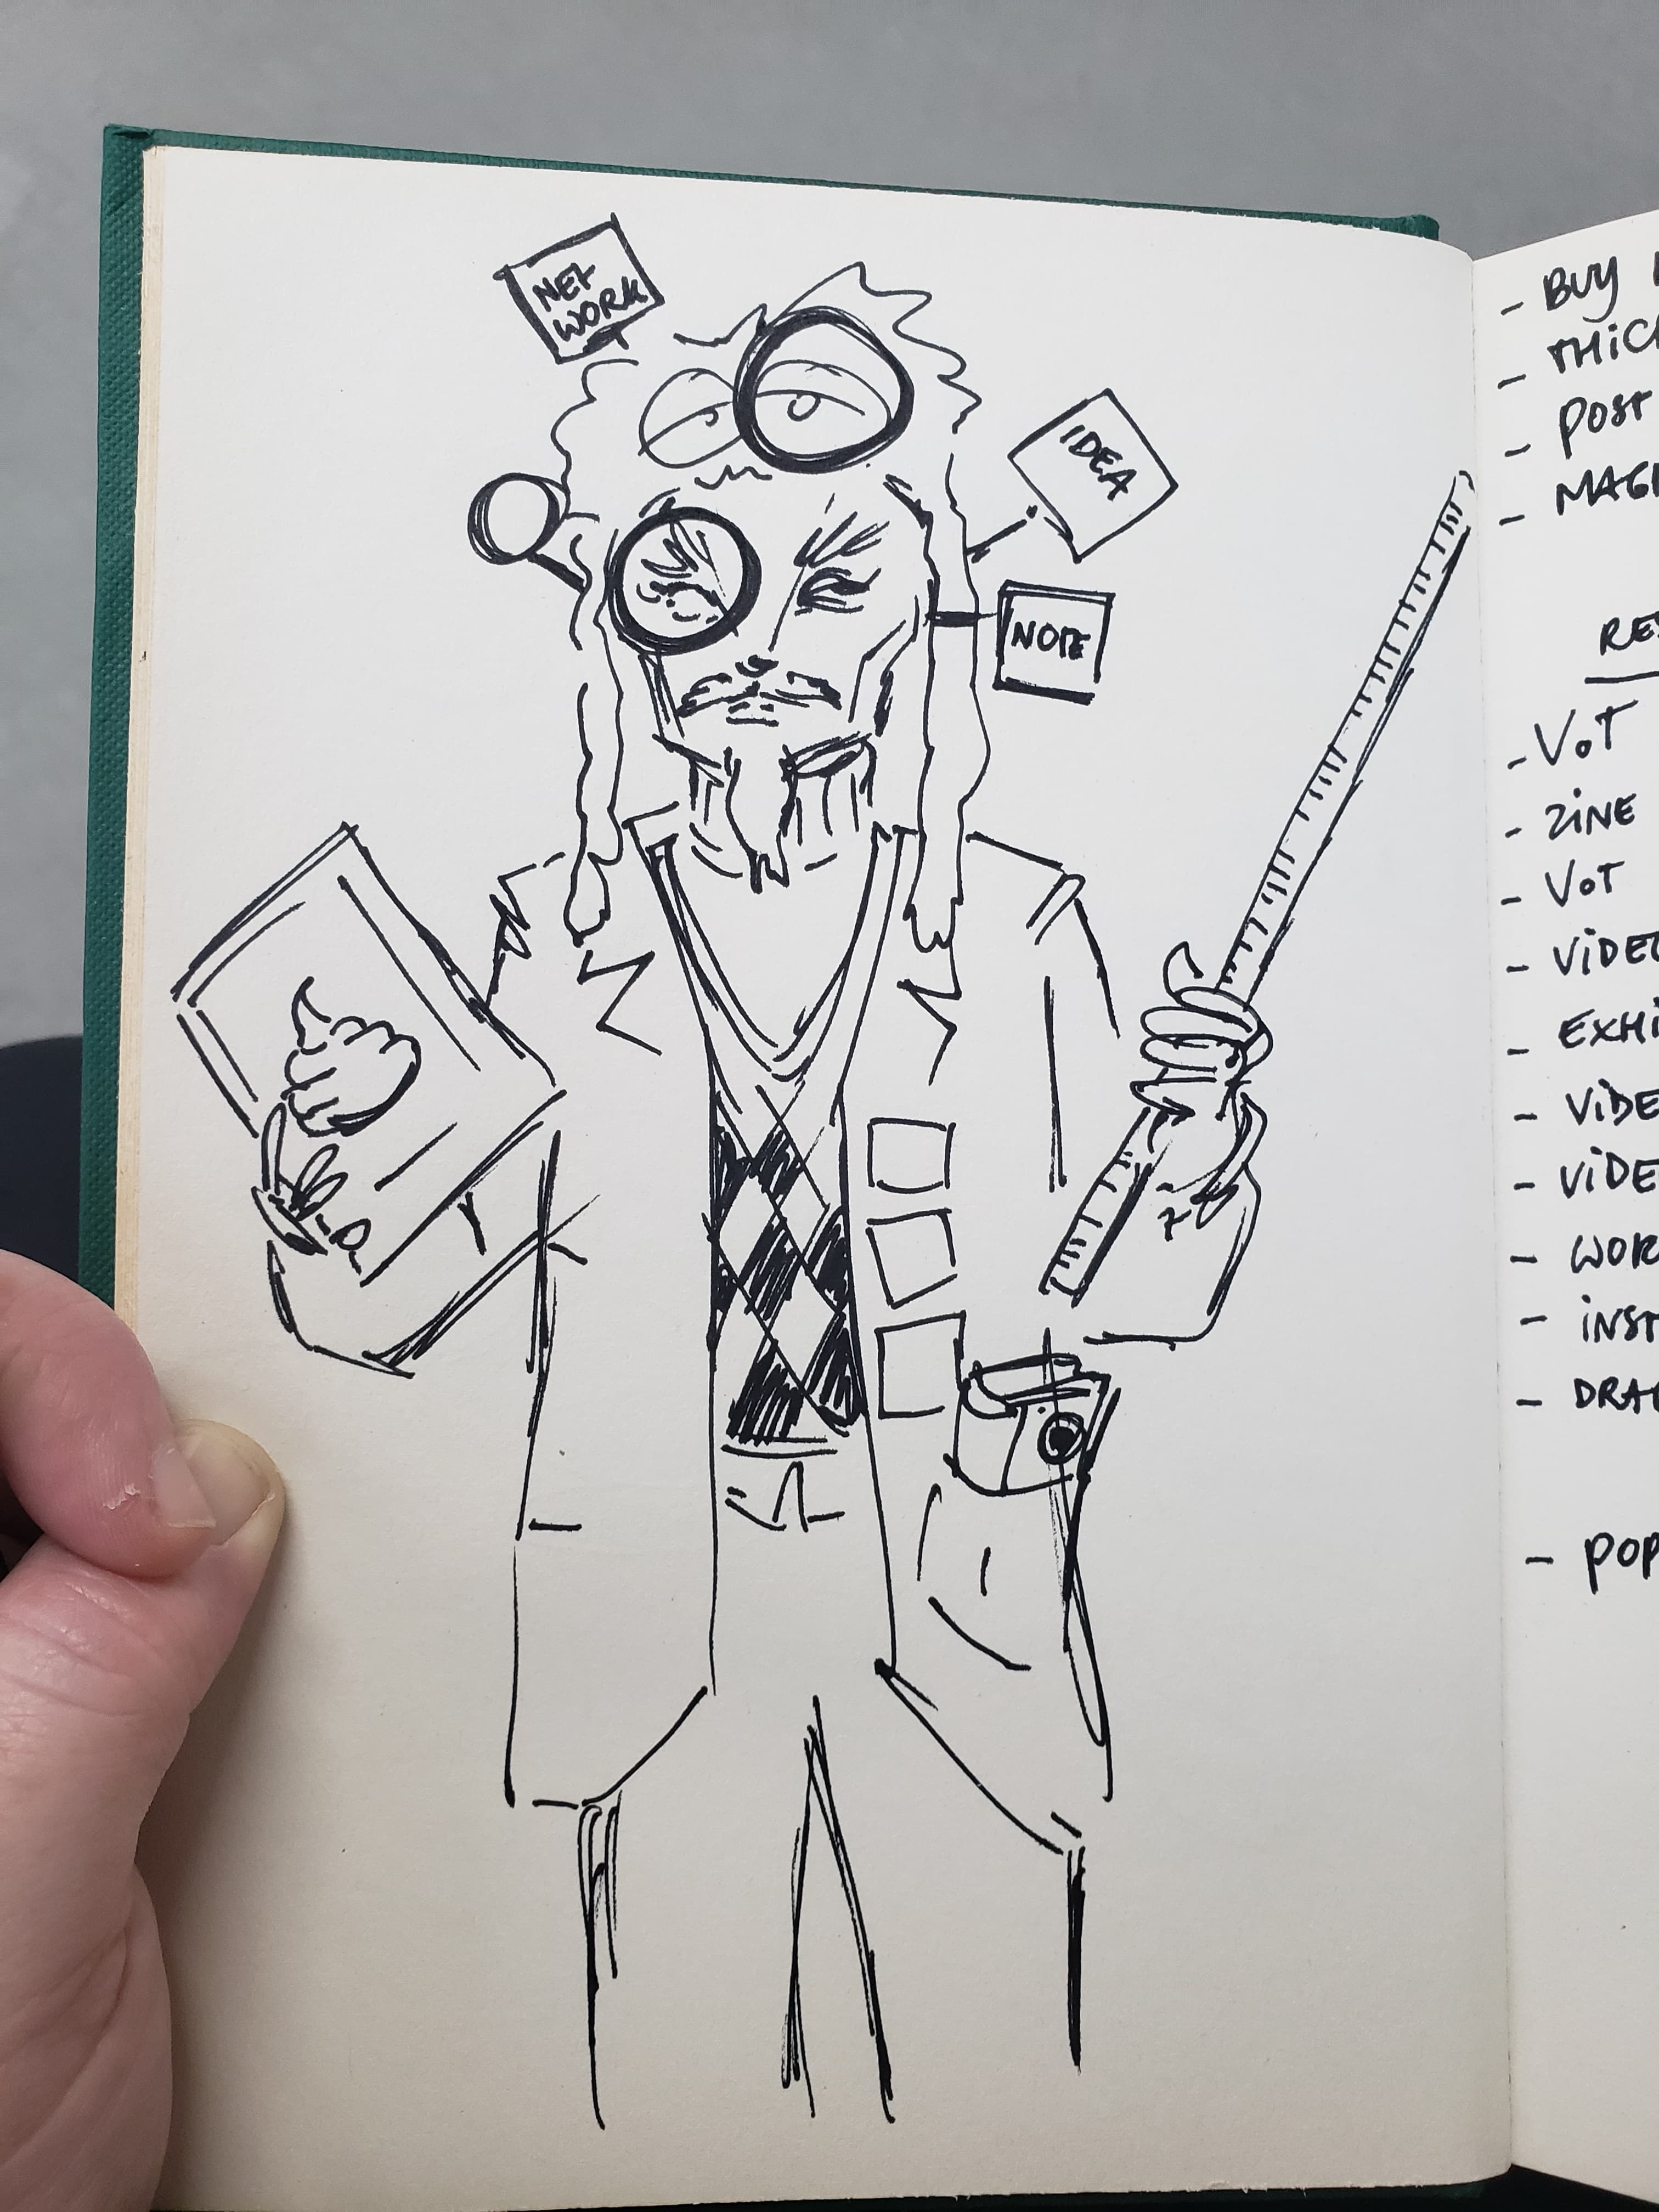 NET
WORK
IDEA
NOTE
- BUY
- THICK
- POST
- MAGI
RES
- VOT
- ZINE
- VOT
- VIDEO
- EXHI
- VIDE
- VIDE
- WOR
- INST
- DRA
- POP